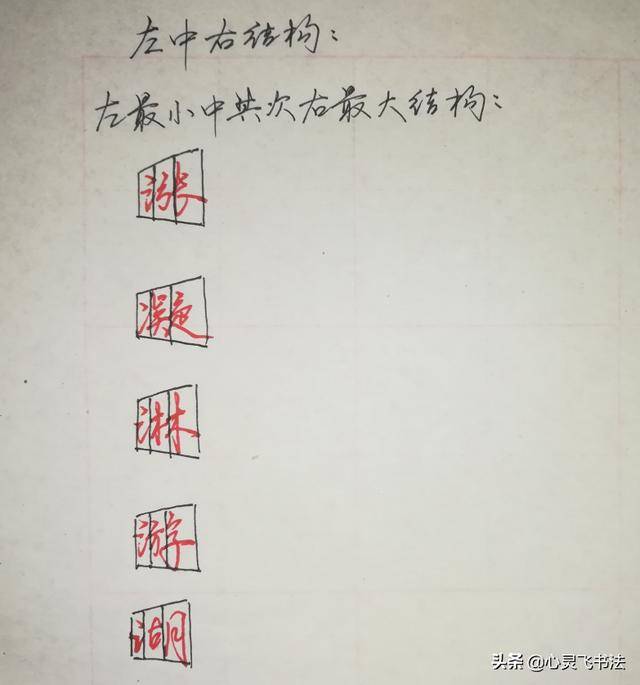 左中右结构：
左最小中其次右最大结构：
涨
凝
淋
游
湖
头条 @心灵飞书法